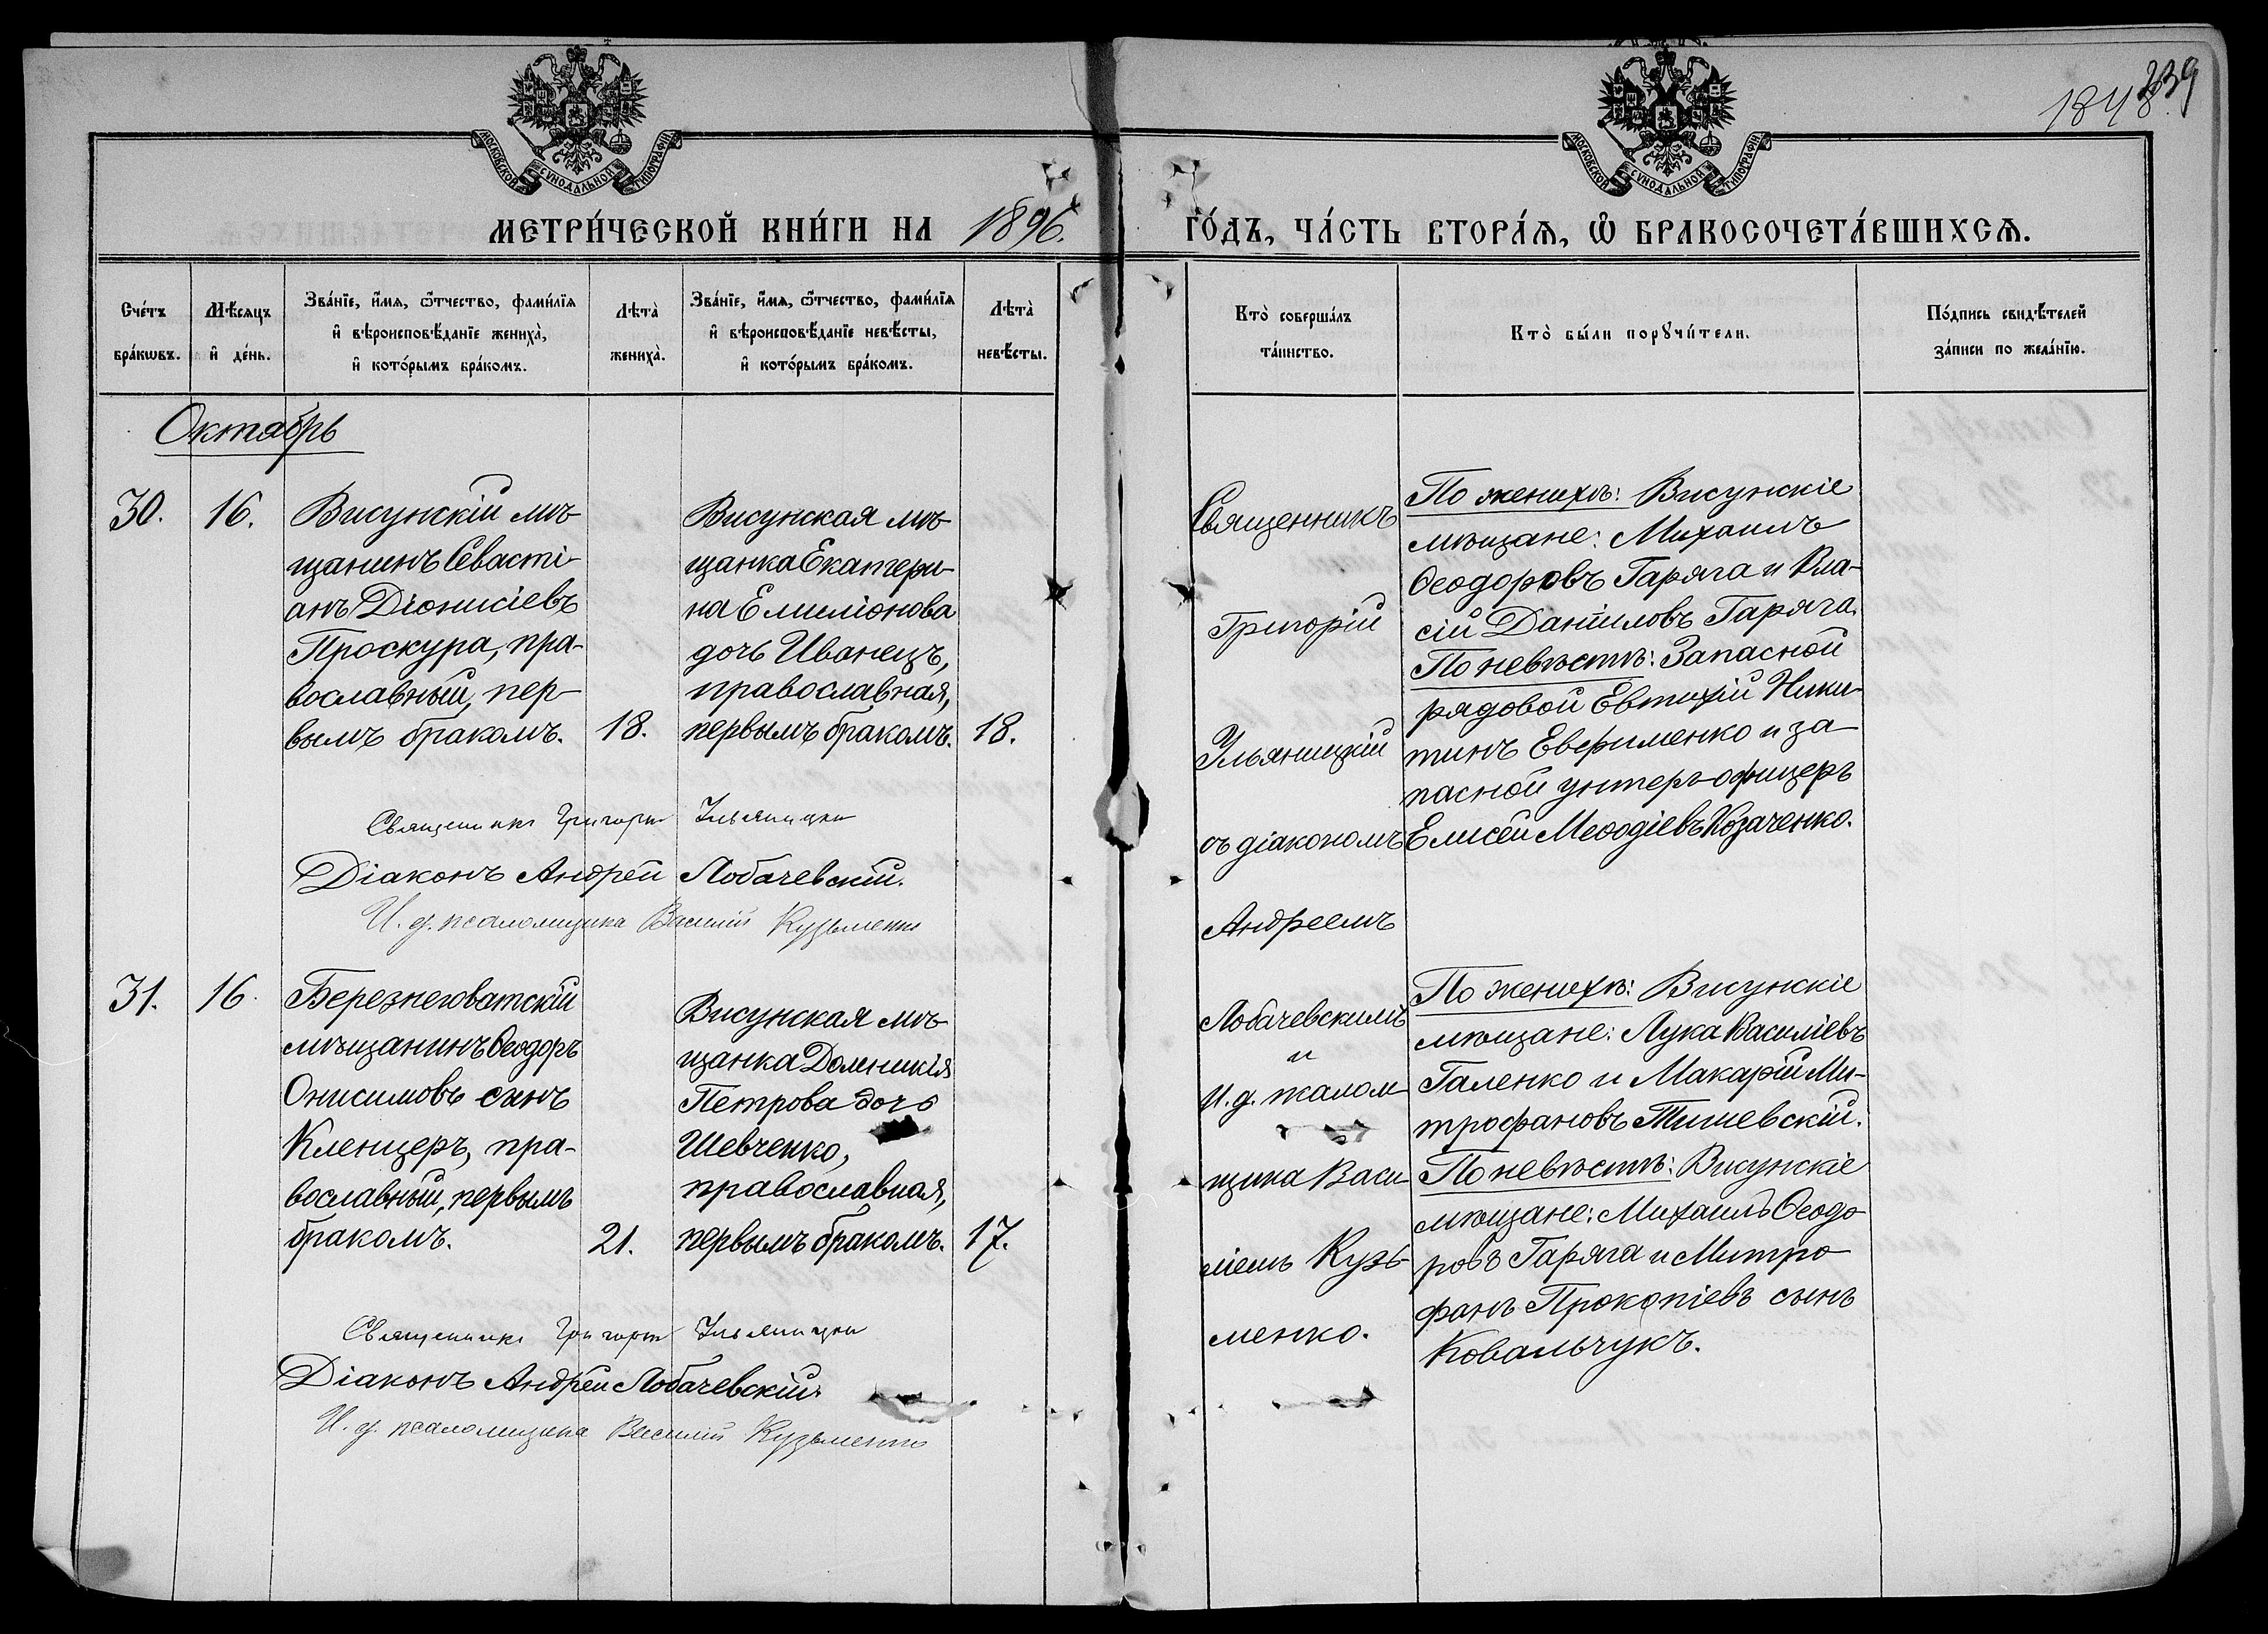 МОСКОВСКОЙ СѴНОДАЛЬНОЙ ТИПОГРАФІИ
МОСКОВСКОЙ СѴНОДАЛЬНОЙ ТИПОГРАФІИ
239
МЕТРИ́ЧЕСКОЙ КНИ́ГИ НА 1896. ГО́ДЪ, ЧА́СТЬ ВТОРА́Я, Ѿ БРАКОСОЧЕТА́ВШИХСЯ.
Сче́тъ
бра́кѡвъ.
Мѣ́сяцъ
и҆ де́нь.
Зва́нїе, и҆́мя, ѻ҆́тчество, фами́лїя
и҆ вѣроисповѣ́данїе жениха̀,
и҆ кото́рымъ бра́комъ.
Лѣта̀
жениха̀.
Зва́нїе, и҆́мя, ѻ҆́тчество, фами́лїя
и҆ вѣроисповѣ́данїе невѣ́сты,
и҆ кото́рымъ бра́комъ.
Лѣта̀
невѣ́сты.
Кто̀ соверша́лъ
та́инство.
Кто̀ бы́ли порꙋчи́тели.
По́дпись свидѣ́телей
за́писи по жела́нїю.
Октябрь
30.
16.
Висунскій мѣ-
щанинъ Севасті-
анъ Діонисіевъ
Проскура, пра-
вославный, пер-
вымъ бракомъ.
18.
Висунская мѣ-
щанка Екатери-
на Емиліонова
дочь Иванецъ,
православная,
первымъ бракомъ.
18.
Священникъ
Григорій
Ульяницкій
съ діакономъ
Андреемъ
Лобачевскимъ
и
И. д. псалом-
щика Васи-
ліемъ Кузь-
менко.
По женихѣ: Висунскіе
мѣщане: Михаилъ
Ѳеодоровъ Гаряга и Вла-
сій Даніиловъ Гаряга.
По невѣстѣ: Запасной
рядовой Евтихій Ники-
тинъ Евфименко и за-
пасной унтеръ-офицеръ
Елисей Меѳодіевъ Козаченко.
Священникъ Григорій Ульяницкій
Діаконъ Андрей Лобачевскій.
И. д. псаломщика Василій Кузьменко
31.
16.
Березнеговатскій
мѣщанинъ Ѳеодоръ
Онисимовъ сынъ
Кленцеръ, пра-
вославный, первымъ
бракомъ.
21.
Висунская мѣ-
щанка Домникія
Петрова дочь
Шевченко,
православная,
первымъ бракомъ.
17.
По женихѣ: Висунскіе
мѣщане: Лука Василіевъ
Галенко и Макарій Ми-
трофановъ Тишевскій.
По невѣстѣ: Висунскіе
мѣщане: Михаилъ Ѳеодо-
ровъ Гаряга и Митро-
фанъ Прокопіевъ сынъ
Ковальчукъ.
Священникъ Григорій Ульяницкій
Діаконъ Андрей Лобачевскій.
И. д. псаломщика Василій Кузьменко